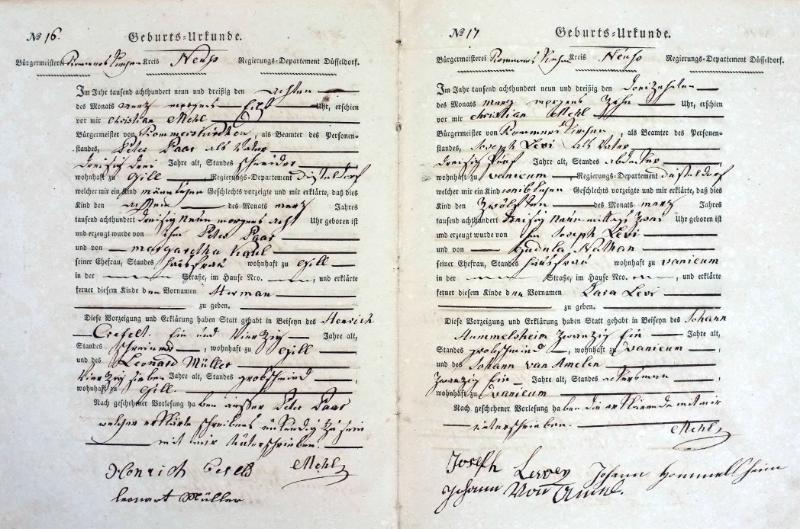 № 16.
Geburts-Urkunde.
Bürgermeisterei Kreis Neuss Regierungs-Departement Düsseldorf.
Im Jahr tausend achthundert neun und dreißig den achten
des Monats mertz morgens Eilf Uhr, erschien
vor mir Christian Mehl
Bürgermeister von Rommerskirchen, als Beamter des Personen-
standes, Peter Paas als Vater
dreisig drei Jahre alt, Standes schneider
wohnhaft zu Gill Regierungs-Departement Düsseldorf
welcher mir ein Geschlechts vorzeigte und mir erklärte, daß dies
Kind den achten des Monats mertz Jahres
tausend achthundert dreisig neun morgens acht Uhr geboren ist
und erzeugt wurde von ihm Peter Paas
und von margaretha
seiner Ehefrau, Standes hausfrau wohnhaft zu Gill
in der Straße, im Hause Nro. und erklärte
ferner diesem Kinde den Vornamen Herman
zu geben.
Diese Vorzeigung und Erklärung haben Statt gehabt in Beiseyn des Henrich
Crefelt ein und vierzig Jahre alt,
Standes schreiner, wohnhaft zu Gill
und des Leonard Müller
vierzig sieben Jahre alt, Standes grobschmied
wohnhaft zu Gill
Nach geschehener Vorlesung haben außer Peter Paas
welcher erklärte schreibens unkundig zu sein
mit mir unterschrieben.
Mehl
Henrich
leonart Müller
№ 17
Geburts-Urkunde.
Bürgermeisterei Kreis Neuss Regierungs-Departement Düsseldorf.
Im Jahr tausend achthundert neun und dreißig den dreizehnten
des Monats mertz morgens Zehn Uhr, erschien
vor mir Christian Mehl
Bürgermeister von Rommerskirchen, als Beamter des Personen-
standes, Joseph Levi als Vater
dreisig fünf Jahre alt, Standes
wohnhaft zu vanicum, Regierungs-Departement Düsseldorf
welcher mir ein weiblichen Geschlechts vorzeigte und mir erklärte, daß dies
Kind den Zwölften des Monats mertz Jahres
tausend achthundert dreisig neun mittags zwei Uhr geboren ist
und erzeugt wurde von ihm Joseph Levi
und von Gudula Nathan
seiner Ehefrau, Standes hausfrau wohnhaft zu vanicum
in der Straße, im Hause Nro. und erklärte
ferner diesem Kinde den Vornamen Sara Levi
zu geben.
Diese Vorzeigung und Erklärung haben Statt gehabt in Beiseyn des Johann
Hummelsheim zwanzig Ein Jahre alt,
Standes grobschmied, wohnhaft zu vanicum
und des Johann van Amelen
Zwanzig Ein Jahre alt, Standes ackersmann
wohnhaft zu vanicum
Nach geschehener Vorlesung haben die erschienenen mit mir
unterschrieben.
Mehl
Joseph Levey Johann Hommelsheim
Johann Von